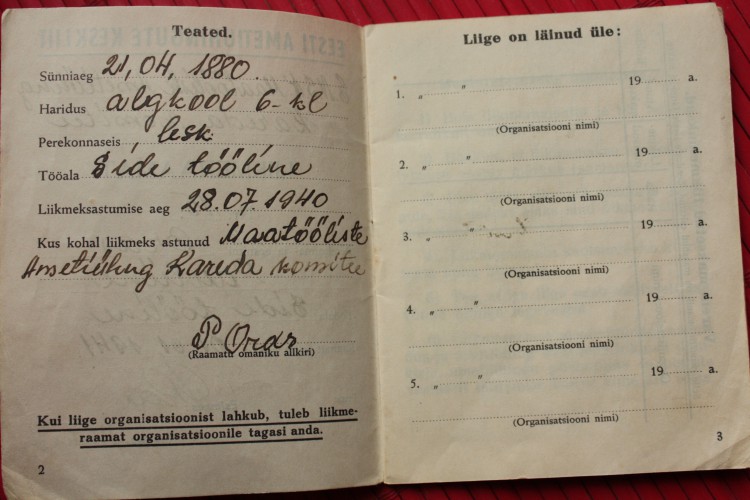 Teated.
Sünniaeg 21,04,1880.
Haridus algkool 6-kl
Perekonnaseis lesk
Tööala Side tööline
Liikmeksastumise aeg 28.07.1940
Kus kohal liikmeks astunud Maatööliste
Ametiühing Kareda komitee
P Orar
(Raamatu omaniku allkiri)
Kui liige organisatsioonist lahkub, tuleb liikme-
raamat organisatsioonile tagasi anda.
2
Liige on läinud üle:
1. „ ” 19 a.
(Organisatsiooni nimi)
2. „ ” 19 a.
(Organisatsiooni nimi)
3. „ ” 19 a.
(Organisatsiooni nimi)
4. „ ” 19 a.
(Organisatsiooni nimi)
5. „ ” 19 a.
(Organisatsiooni nimi)
3